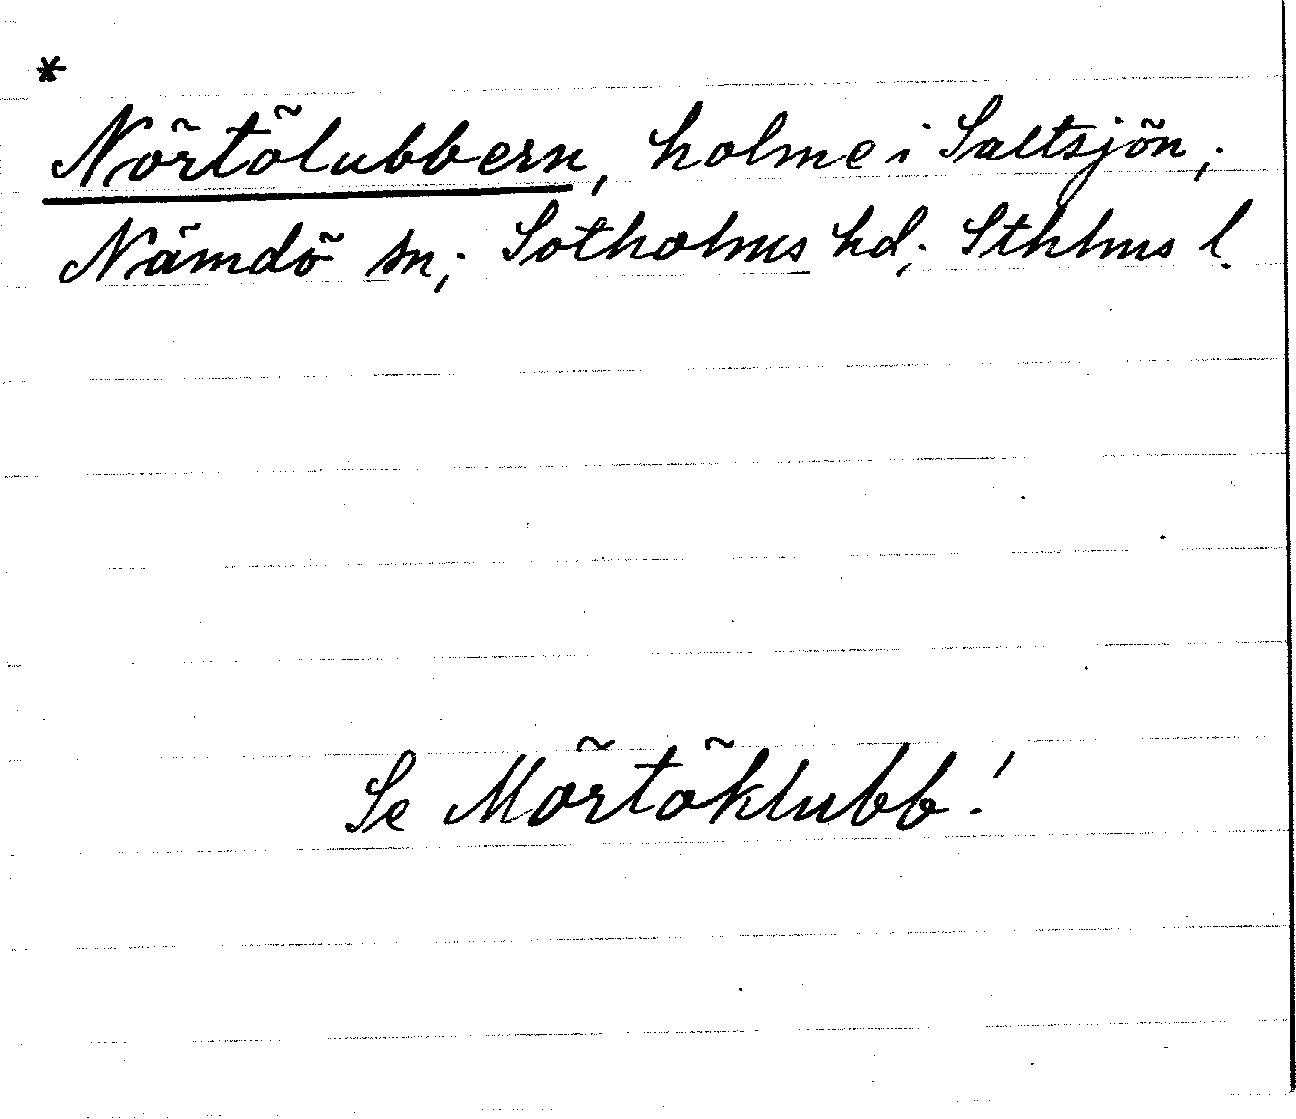 *
Nörtölubbern, holme i Saltsjön;
Nämdö sn; Sotholms hd; Sthlms l.
Se Mörtöklubb!